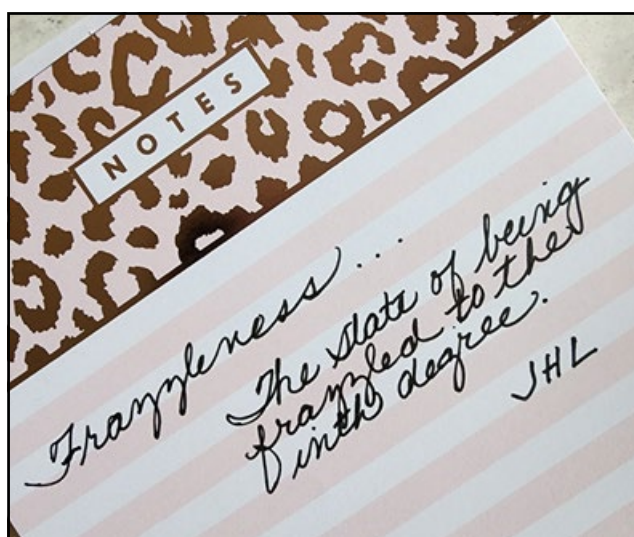 NOTES
Frazzleness...
The state of being
frazzled to the
finth degree.
JHL